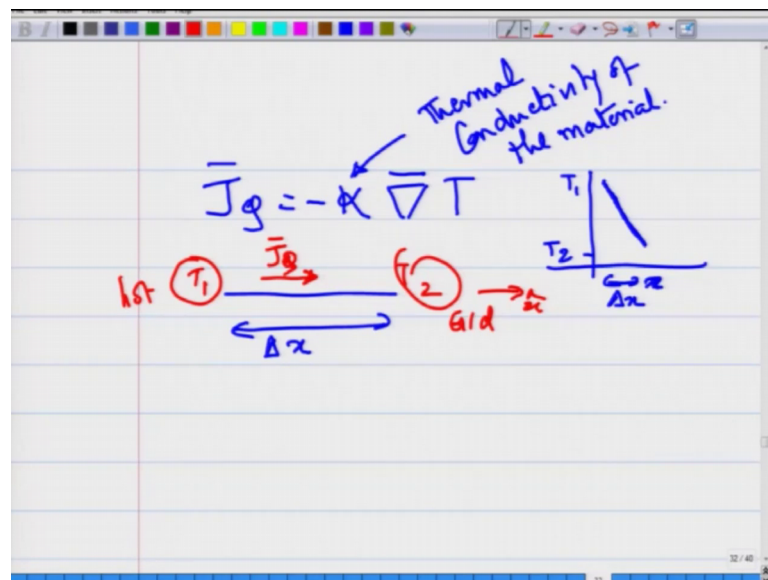 Thermal
Conductivity of
the material.
J̅_Q = - K ∇̅ T
T₁
T₂
Δx
x
hot
T₁
J̅_Q
T₂
Cold
x̂
Δx
32 / 40